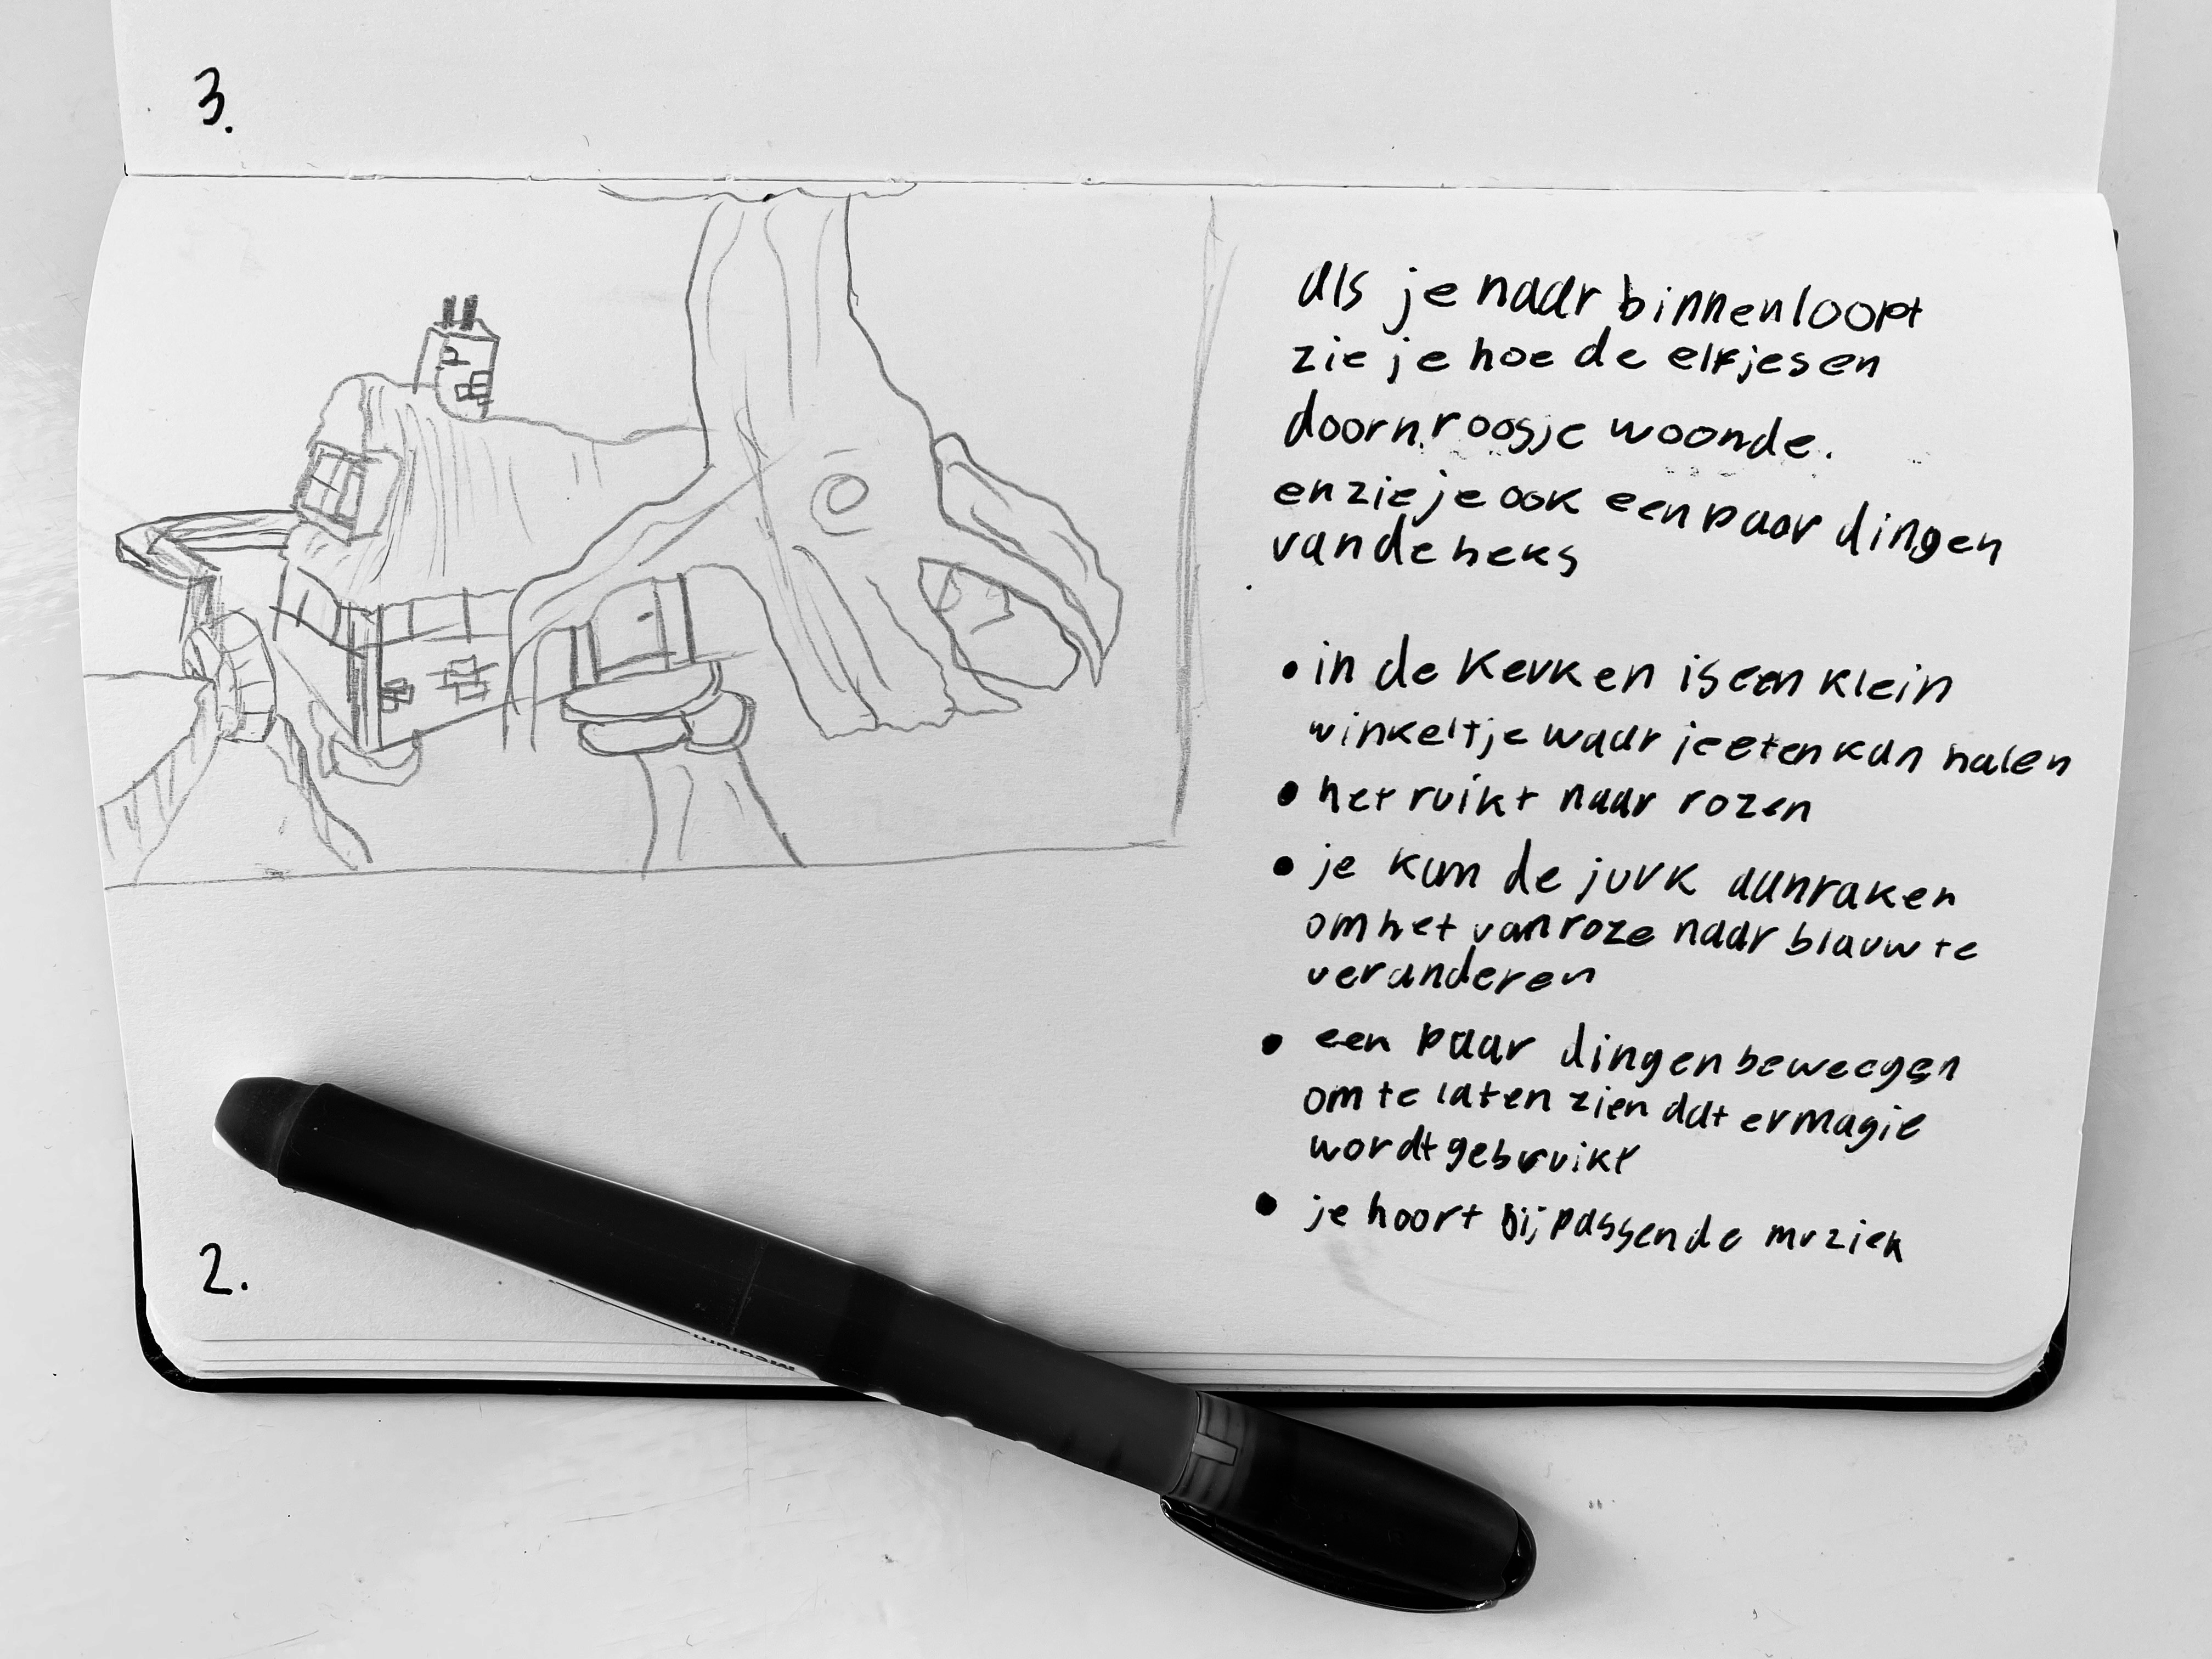 3.
als je naar binnenloopt
zie je hoe de elfjes en
doornroosje woonde.
en zie je ook een paar dingen
van de heks
• in de kerken is een klein
winkeltje waar je eten kan halen
• het ruikt naar rozen
• je kan de jurk aanraken
om het van roze naar blauw te
veranderen
• een paar dingen beweegen
om te laten zien dat er magie
wordt gebruikt
• je hoort bijpassende muziek
2.
medium